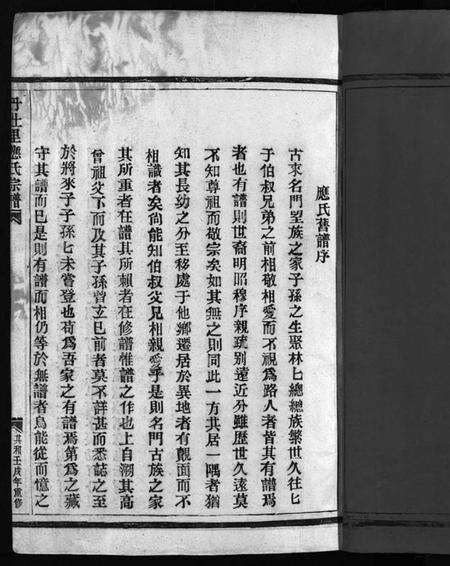 應氏舊譜序
古來名門望族之家子孫之生聚林匕總總族繁世久往匕
于伯叔兄弟之前相敬相愛而不視為路人者皆其有譜焉
者也有譜則世裔明昭穆序親疏別遠近分雖歷世久遠莫
不知尊祖而敬宗矣如其無之則同此一方共居一隅者猶
知其長幼之分至移處于他鄉遷居於異地者有覿面而不
相識者矣尚能知伯叔父兄相親愛乎是則名門古族之家
其所重者在譜其所賴者在修譜惟譜之作也上自溯其高
曾祖父下而及其子孫曾玄已前者莫不詳甚而悉誌之至
於將來子子孫匕未嘗登也苟為吾家之有譜焉第為之藏
守其譜而已是則有譜而相仍等於無譜者烏能從而憶之
里應氏宗譜
共和壬戌年重修